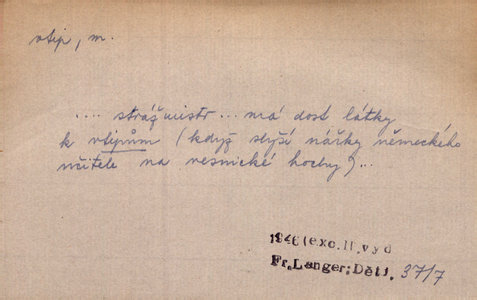 vtip, m.
.... strážmistr... má dost látky
k vtipům (když slyší nářky německého
učitele na vesnické hochy)...
1946 (exc. II. vyd
Fr. Langer: Děti. 37/7